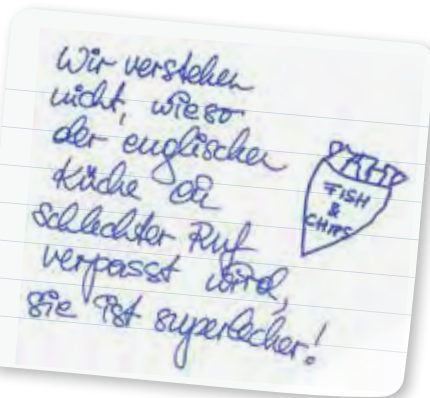 Wir verstehen
nicht, wieso
der englischen
Küche ein
schlechter Ruf
verpasst wird,
sie ist superlecker!
FISH
&
CHIPS